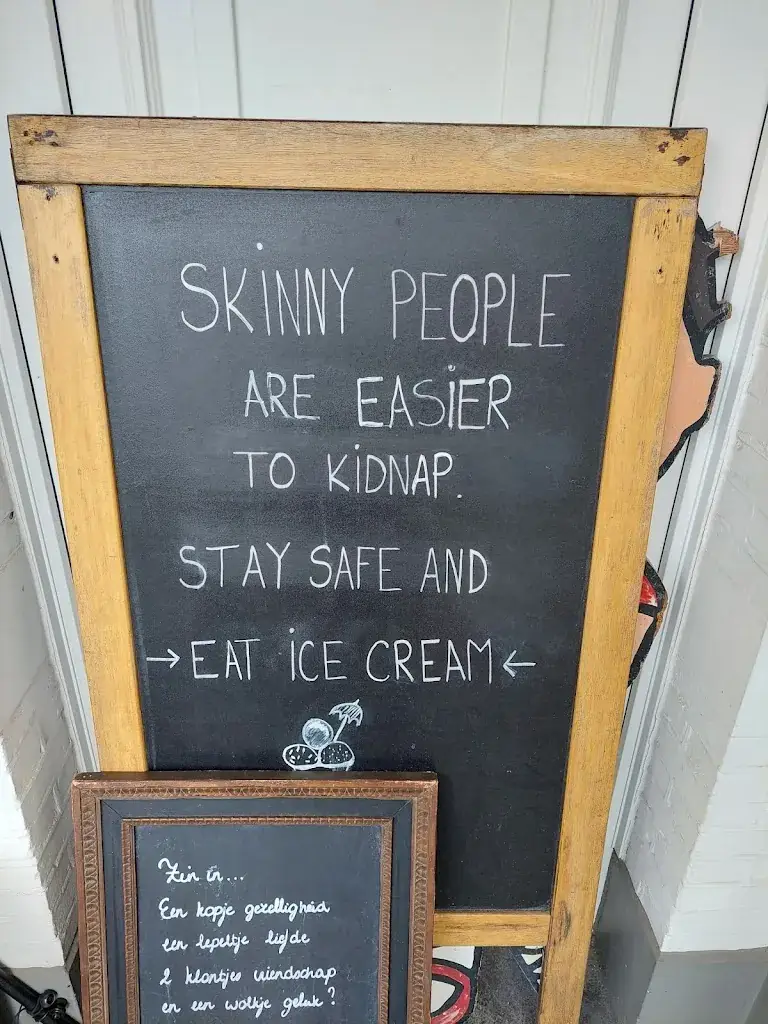 SKINNY PEOPLE
ARE EASIER
TO KIDNAP.
STAY SAFE AND
→ EAT ICE CREAM ←
Zin in...
Een kopje gezelligheid
een lepeltje liefde
2 klontjes vriendschap
en een wolkje geluk?